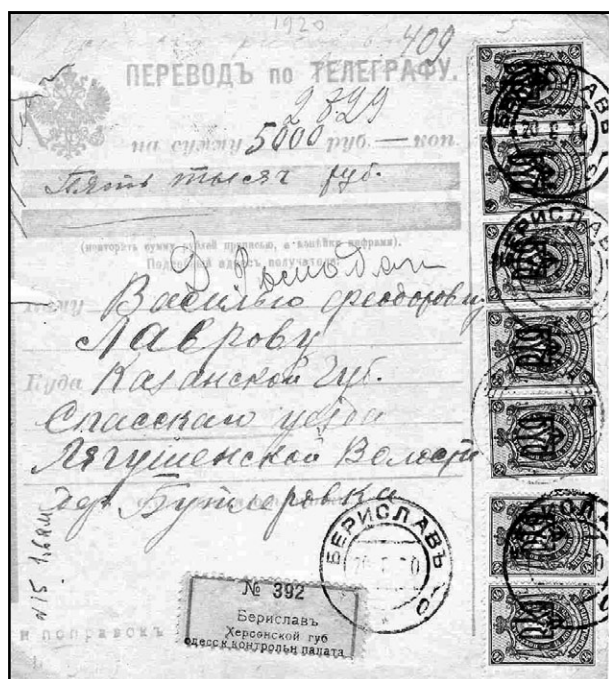 1920
5
409
ПЕРЕВОДЪ по ТЕЛЕГРАФУ.
2829
на сумму 5000 руб. — коп.
Пять тысяч руб.
(повторить сумму рублей прописью, а копѣйки цифрами).
Подробный адресъ получателя:
Кому Василью Феодоровичу
Лаврову
Куда Казанской Губ.
Спасскаго уѣзда
Лягушенской Волости
дер. Бутлеровка
БЕРИСЛАВЪ
БЕРИСЛАВЪ
БЕРИСЛАВЪ
№ 392
Бериславъ
Херсонской губ
одесск контрольн палата
и поправокъ